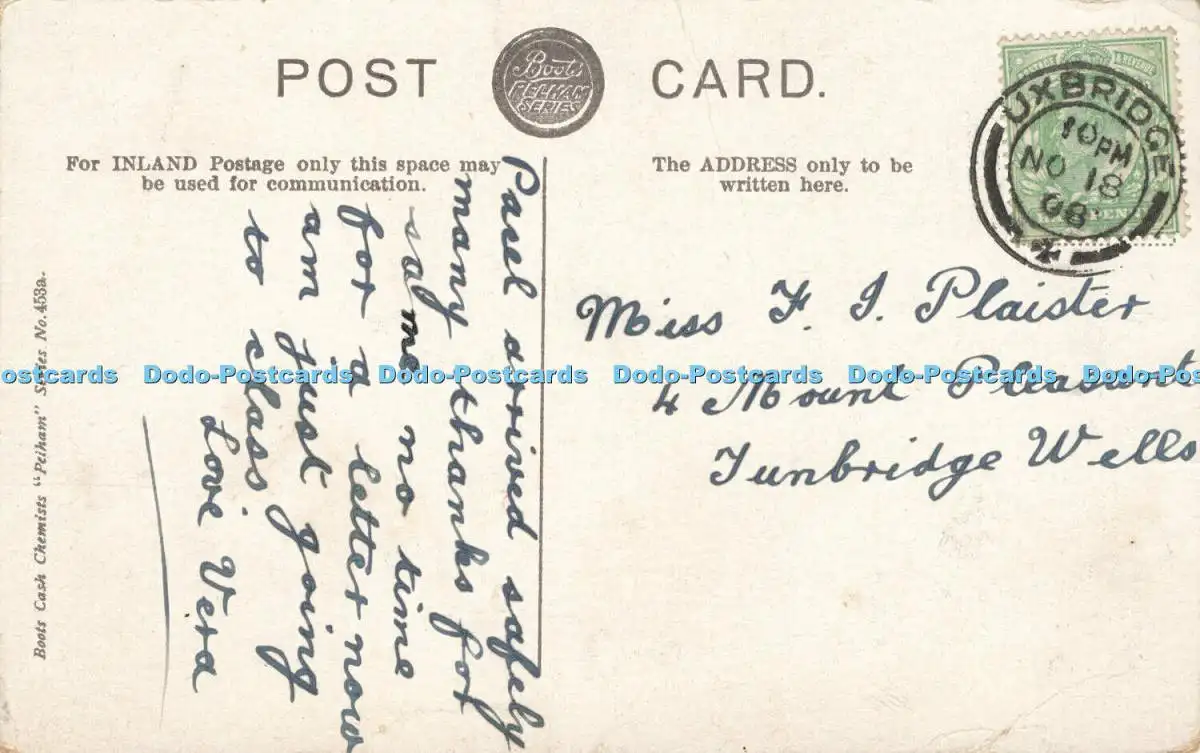 POST CARD.
Boots
PELHAM
SERIES
For INLAND Postage only this space may
be used for communication.
The ADDRESS only to be
written here.
POSTAGE & REVENUE
UXBRIDGE
10 PM
NO 18
08
Pasel arrived safely
many thanks for
same no time
for a letter now
am just going
to class.
Love Vera
Miss F. J. Plaister
4 Mount Pleasant
Tunbridge Wells
Boots Cash Chemists "Pelham" Series No. 453a.
ostcards Dodo-Postcards Dodo-Postcards Dodo-Postcards Dodo-Postcards Dodo-Postc